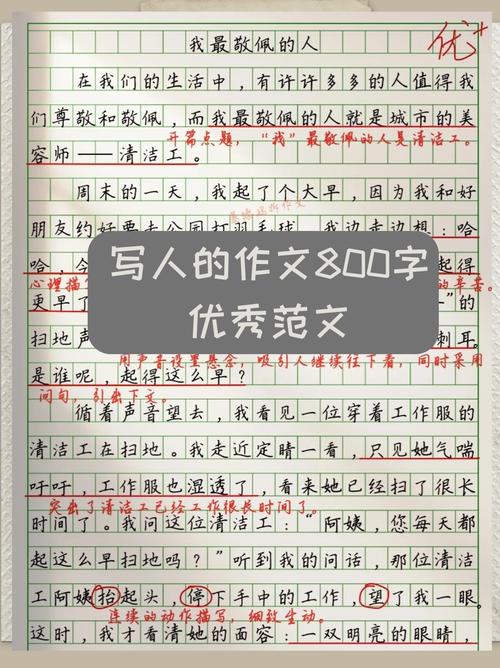 我最敬佩的人
优+
在我们的生活中，有许许多多的人值得我
们尊敬和敬佩，而我最敬佩的人就是城市的美
开篇点题，“我”最敬佩的人是清洁工。
容师——清洁工。
周末的一天，我起了个大早，因为我和好
朋友约好要去公园打羽毛球。我边走边想：哈
哈，今
起得
心理描
的辛苦。
更早了
”的
写人的作文800字
扫地声
刺耳。
优秀范文
用声音设置悬念，吸引人继续往下看，同时采用
是谁呢，起得这么早？
问句，引出下文。
循着声音望去，我看见一位穿着工作服的
清洁工在扫地。我走近定睛一看，只见她气喘
吁吁，工作服也湿透了，看来她已经扫了很长
突出了清洁工已经工作很长时间了。
时间了。我问这位清洁工：“阿姨，您每天都
起这么早扫地吗？”听到我的问话，那位清洁
工阿姨抬起头，停下手中的工作，望了我一眼。
连续的动作描写，细致生动。
这时，我才看清她的面容：一双明亮的眼睛，